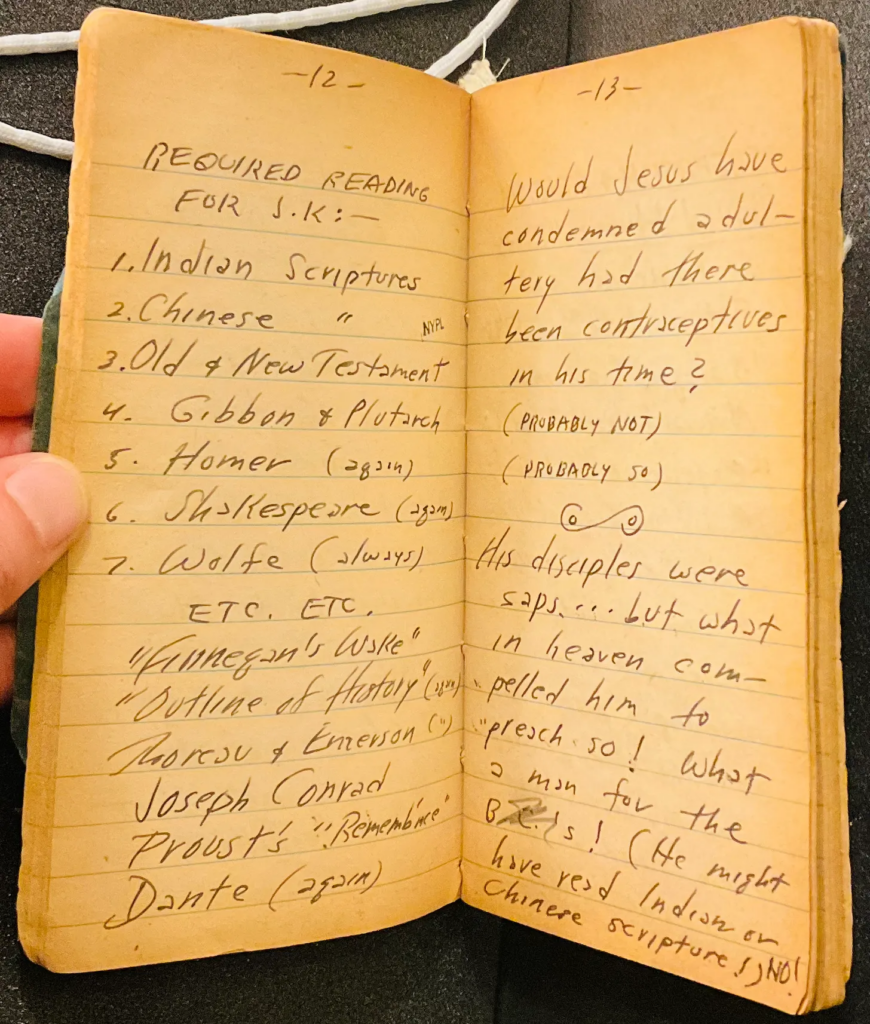 -12-
REQUIRED READING
FOR J.K:—
1. Indian Scriptures
2. Chinese " NYPL
3. Old & New Testament
4. Gibbon & Plutarch
5. Homer (again)
6. Shakespeare (again)
7. Wolfe (always)
ETC. ETC.
"Finnegan's Wake"
"Outline of History" (again)
Thoreau & Emerson (")
Joseph Conrad
Proust's "Rememb'nce"
Dante (again)
-13-
Would Jesus have
condemned adul-
tery had there
been contraceptives
in his time?
(PROBABLY NOT)
(PROBABLY SO)
His disciples were
saps.... but what
in heaven com-
pelled him to
preach so! What
a man for the
B 's! (He might
have read Indian or
Chinese scripture!) NO!